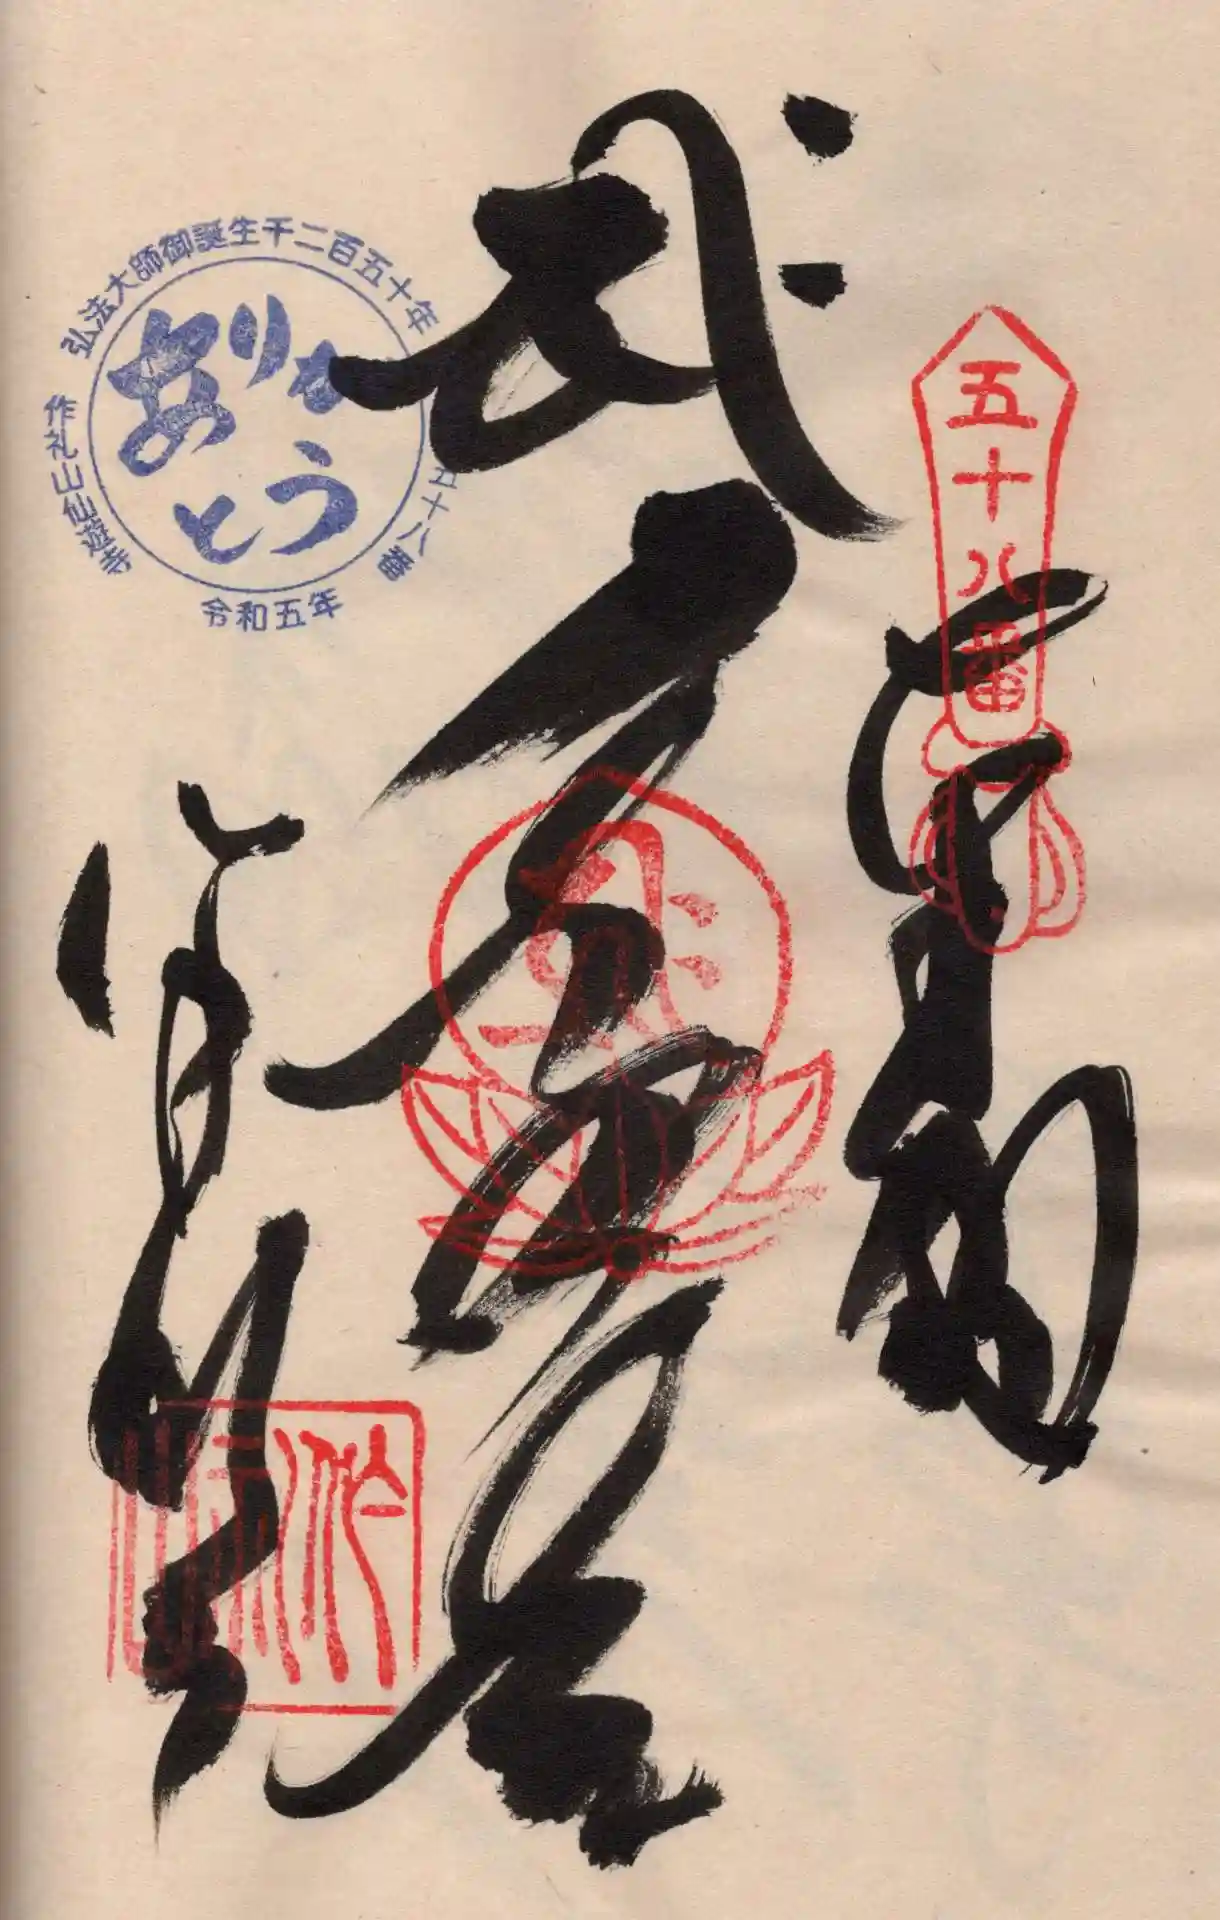 五十八番
奉納
大悲閣
仙遊寺
弘法大師御誕生千二百五十年
ありがとう
五十八番
作礼山仙遊寺
令和五年